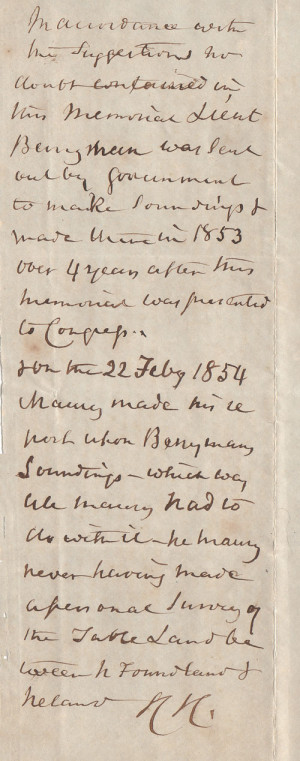 In accordance with
the suggestions no
doubt contained in
this Memorial Lieut
Berryman was sent
out by government
to make Soundings &
made them in 1853
over 4 years after this
memorial was presented
to Congress.
& on the 22 Feby 1854
Maury made his re
port upon Berrymans
Soundings – which was
all Maury had to
do with it – he Maury
never having made
a personal Survey of
the Table Land be
tween N Foundland &
Ireland